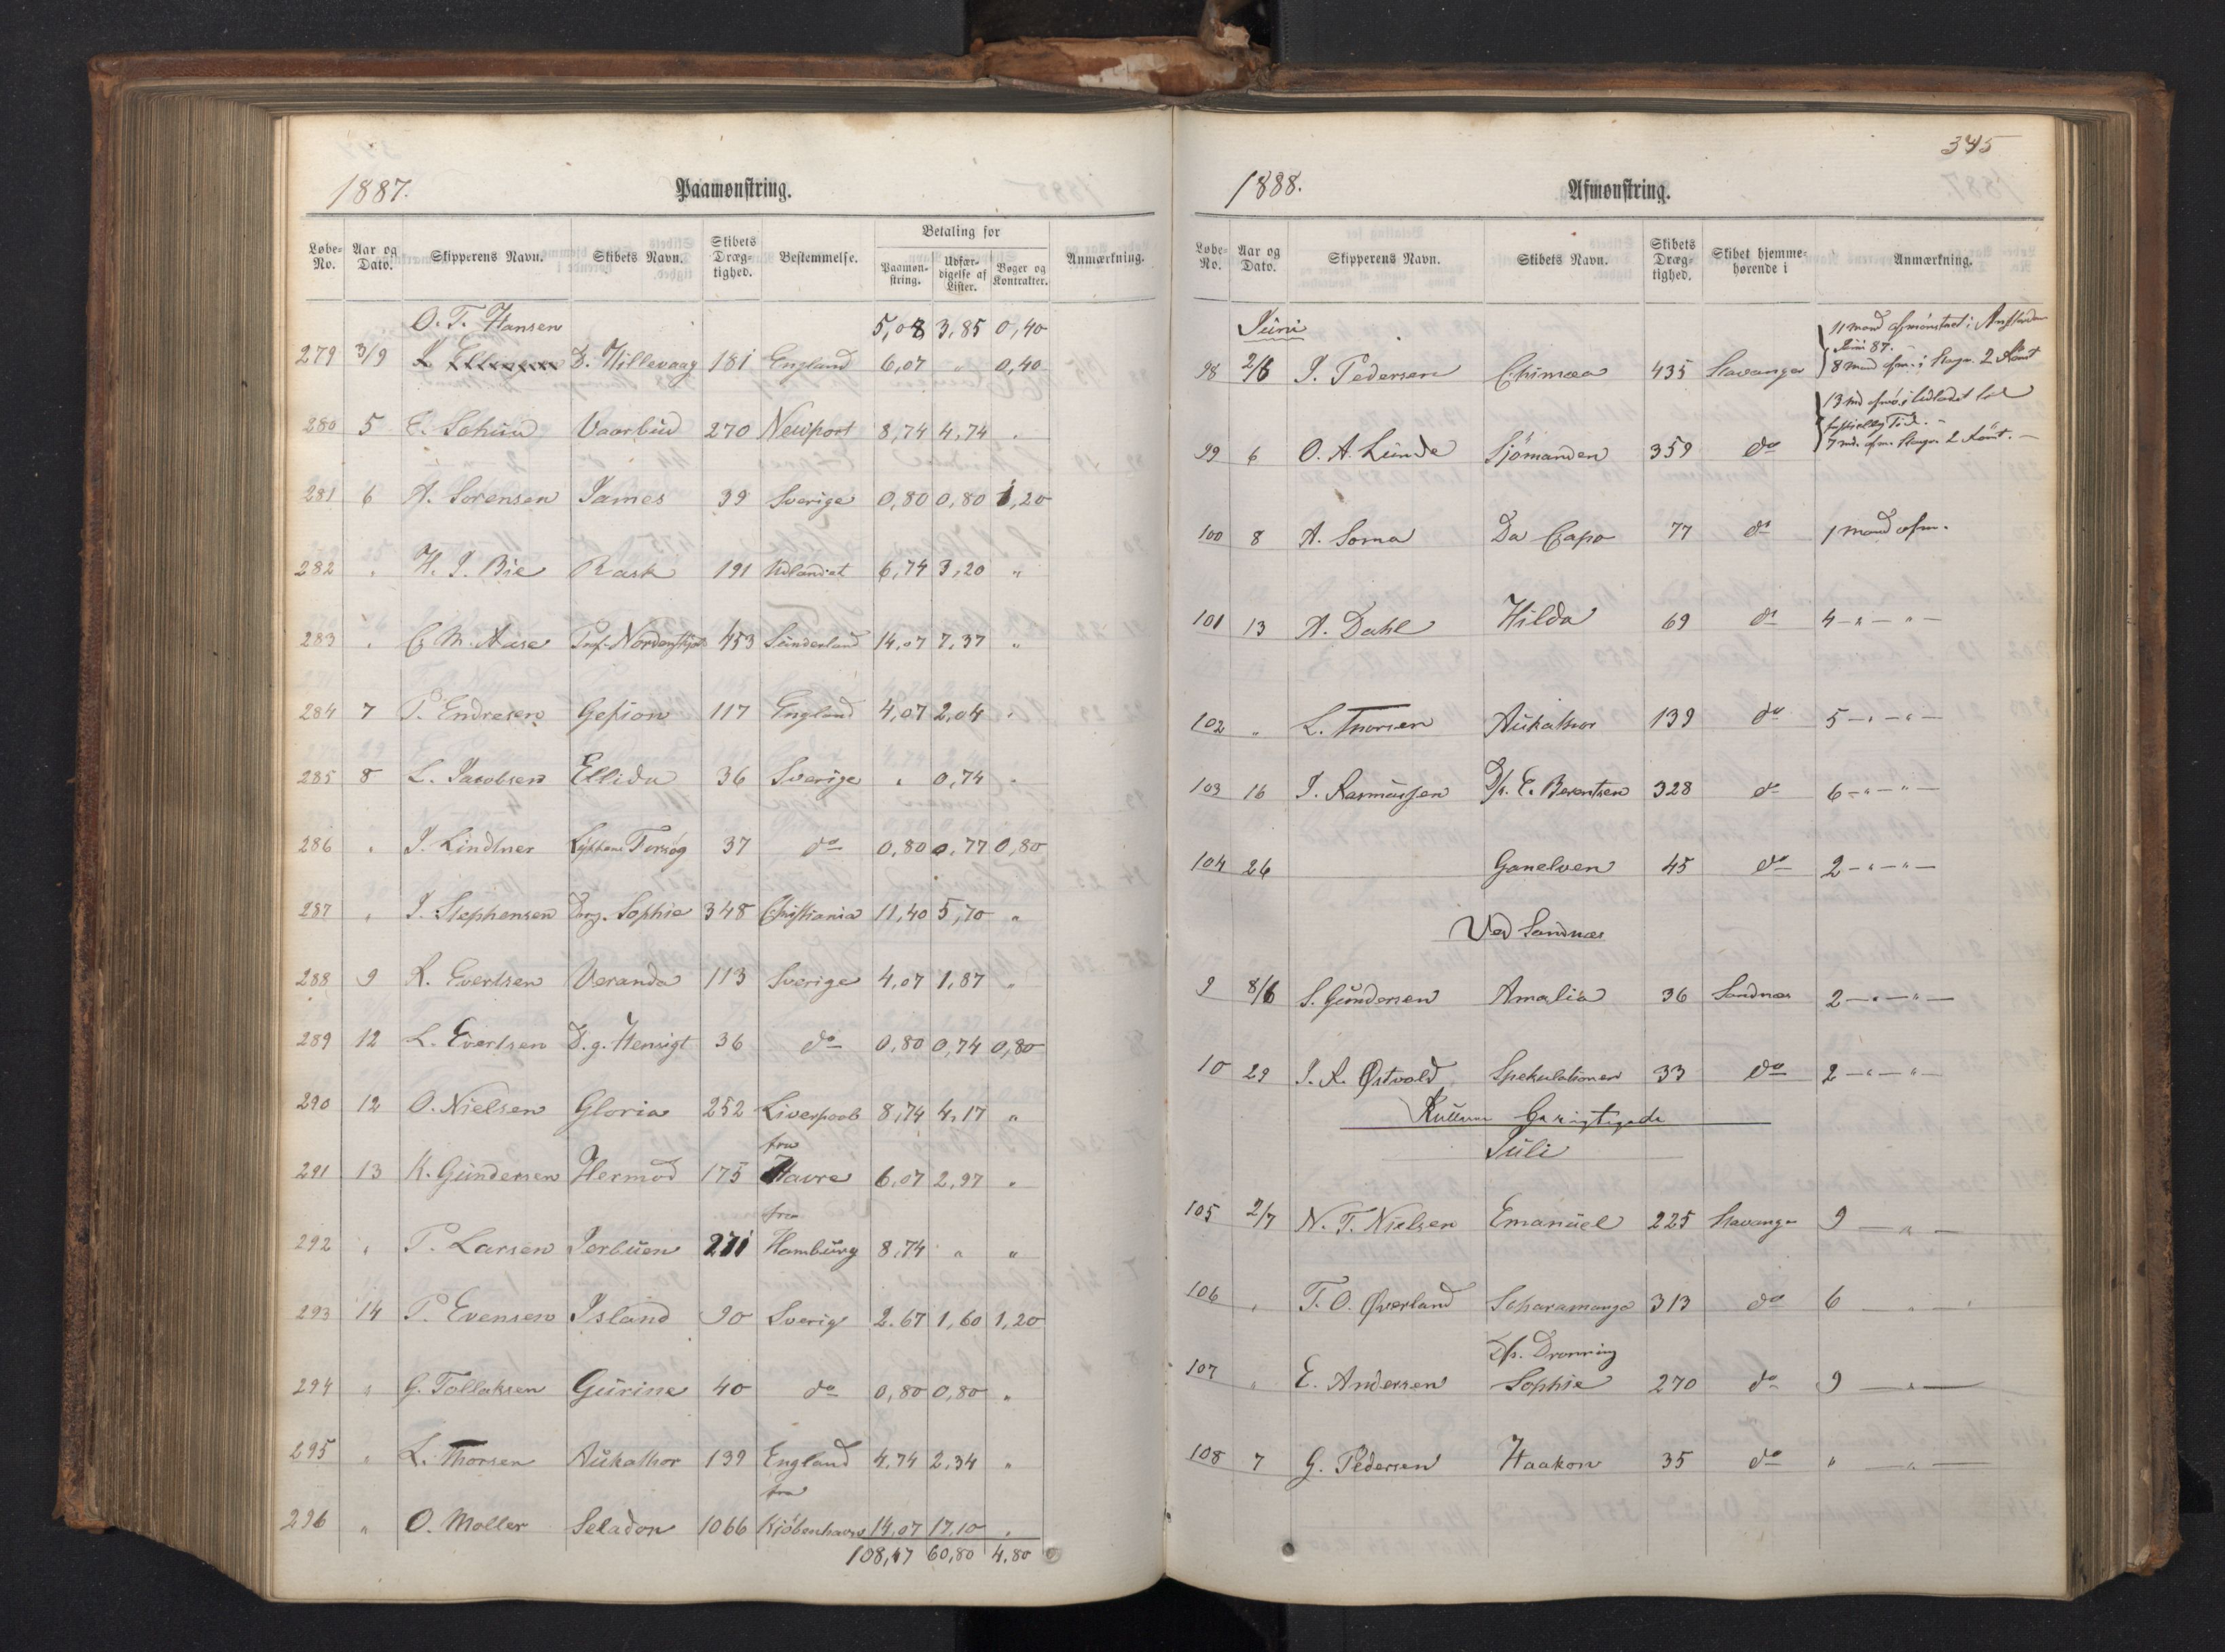 1887.
Paamønstring.
Løbe-No. Aar og Dato. Skipperens Navn. Skibets Navn. Skibets Dræg-tighed. Bestemmelse. Betaling for Paamøn-string. Udfær-digelse af Lister. Bøger og Kontrakter. Anmærkning.
O. T. Hansen 5,08 3,85 0,40
279 3/9 D. Hillevaag 181 England 6,07 " 0,40
280 5 E. Schiøw Vaarbud 270 Newport 8,74 4,74 "
281 6 A. Sorensen James 39 Sverige 0,80 0,80 1,20
282 " H. J. Bie Rask 191 Udlandet 6,74 3,20 "
283 " C. M. Aase Prof. Nordenskjold 453 Sunderland 14,07 7,37 "
284 7 P. Endresen Gefion 117 England 4,07 2,04 "
285 8 L. Jacobsen Ellida 36 Sverige " 0,74 "
286 " J. Lindtner Lykkens Forsøg 37 do 0,80 0,77 0,80
287 " J. Stephensen Drg. Sophie 348 Christiania 11,40 5,70 "
288 9 R. Evertsen Veranda 113 Sverige 4,07 1,87 "
289 12 L. Evertsen D. g. Hensigt 36 do 0,80 0,74 0,80
290 12 O. Nielsen Gloria 252 Liverpool 8,74 4,17 "
291 13 K. Gundersen Hermod 175 fra Havre 6,07 2,97 "
292 " P. Larsen Jerbuen 271 fra Hamburg 8,74 " "
293 14 P. Evensen Island 90 Sverig 2.67 1,60 1,20
294 " G. Tollaksen Gurine 40 do 0,80 0,80 "
295 " L. Thorsen Aukathor 139 England 4.74 2.34 "
296 " O. Møller Seladon 1066 fra Kjøbenhavn 14,07 17,10 "
108,17 60,80 4.80
345
1888.
Afmønstring.
Løbe-No. Aar og Dato. Skipperens Navn. Skibets Navn. Skibets Dræg-tighed. Skibet hjemme-hørende i Anmærkning.
Juni
11 mand afmønstret i
Juni 87.
98 2/6 J. Pedersen Chimæa 435 Stavanger 8 mand afm. i Stavgr. 2 Rømt
13 md
99 6 O. A. Lunde Sjömanden 359 do 7 md. afm. Stavgr. 2 Rømt.
100 8 A. Soma Da Capo 77 do 1 mand afm.
101 13 A. Dahl Hilda 69 do 4 — " — " —
102 " L. Thorsen Aukathor 139 do 5 — " — " —
103 16 J. Rasmussen D/s. E. Berentsen 328 do 6 — " — " —
104 26 Ganelven 45 do 2 — " — " —
Ved Sandnæs
9 8/6 S. Gundersen Amalia 36 Sandnæs 2 — " — " —
10 29 J. A. Østvold Spekulationen 33 do 2 — " — " —
Juli
105 2/7 N. T. Nielsen Emanuel 225 Stavanger 9 — " —
106 " T. O. Øverland Scharamanga 313 do 6 — " —
107 " E. Andersen D/s. Dronning Sophie 270 do 9 — " —
108 7 G. Pedersen Haakon 35 do " — " —